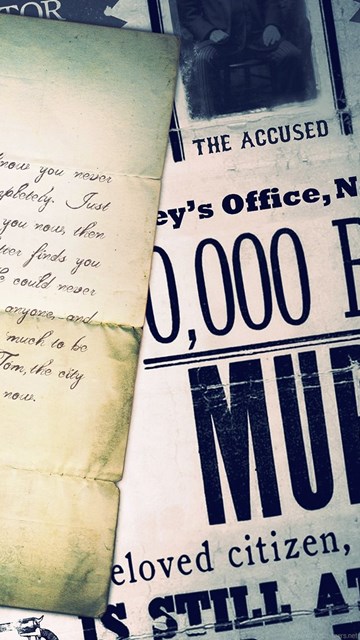 TOR
know you never
mpletely. Just
you now, then
finds you
could never
anyone, and
much to be
Tom, the city
now.
THE ACCUSED
ey's Office, N
0,000
MU
eloved citizen,
IS STILL AT